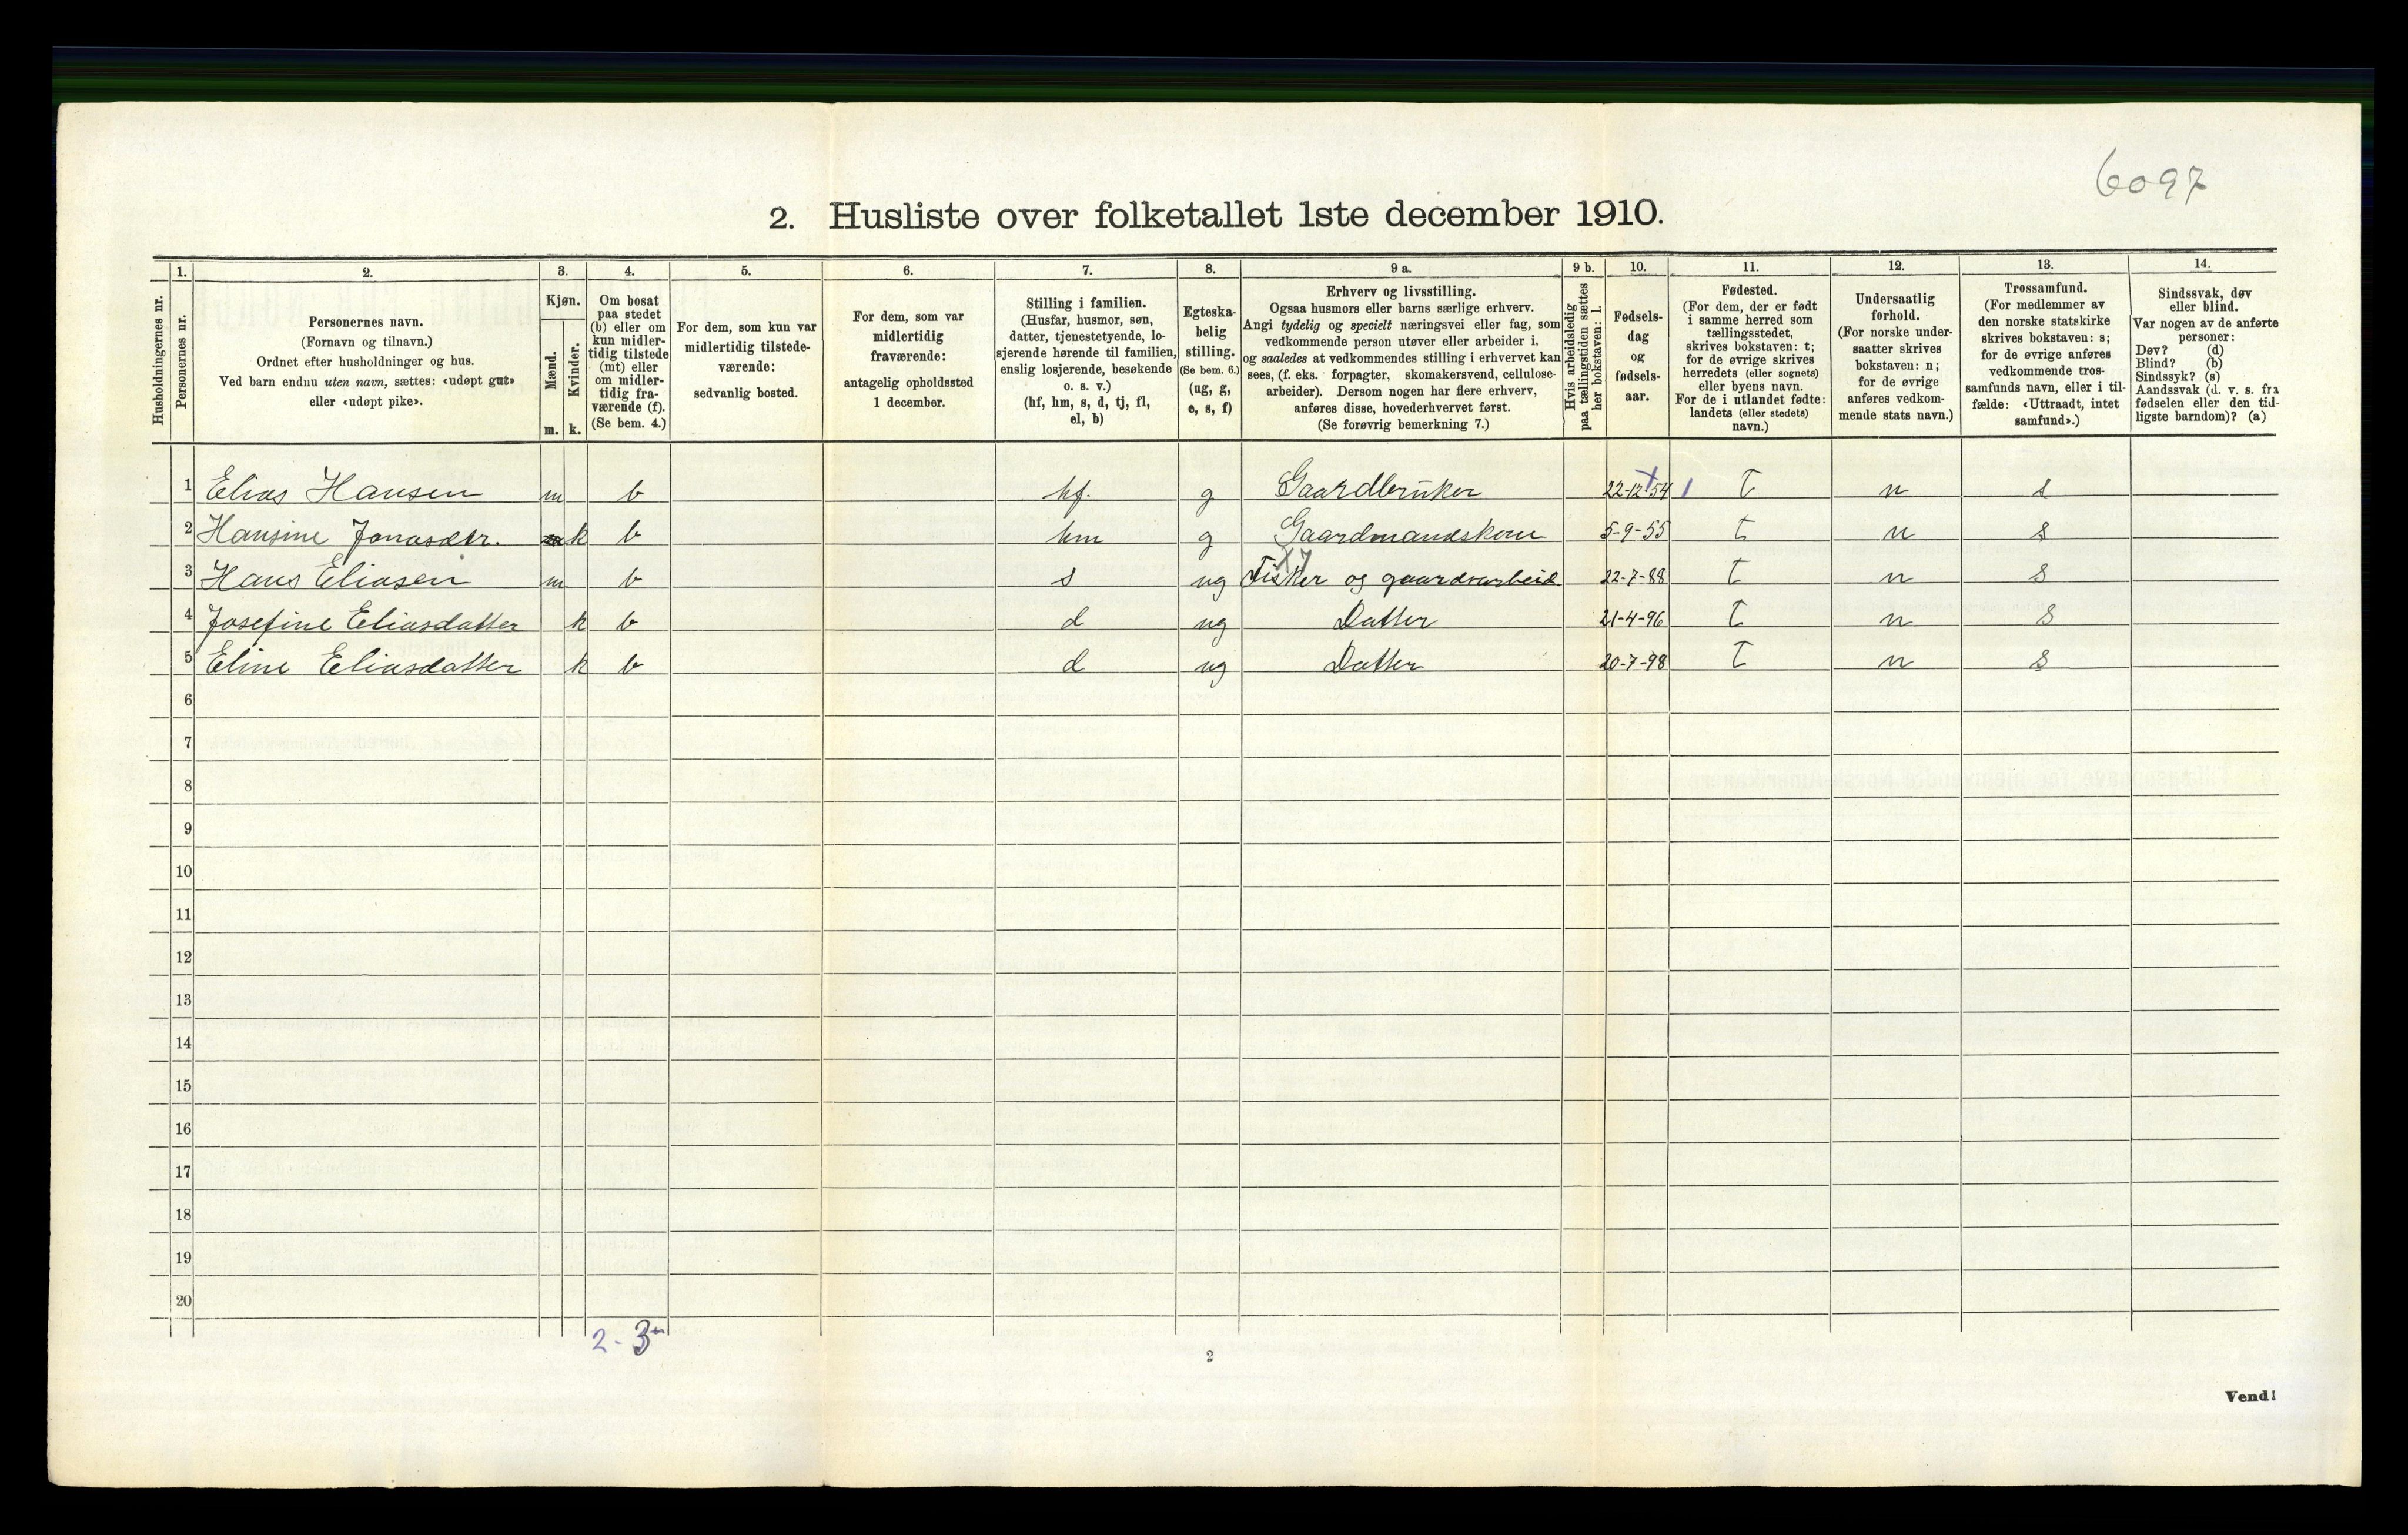 6097
2. Husliste over folketallet 1ste december 1910.
Husholdningernes nr.
1. Personernes nr.
2. Personernes navn. (Fornavn og tilnavn.) Ordnet efter husholdninger og hus. Ved barn endnu uten navn, sættes: «udøpt gut» eller «udøpt pike».
3. Kjøn. Mænd. m. Kvinder. k.
4. Om bosat paa stedet (b) eller om kun midlertidig tilstede (mt) eller om midlertidig fraværende (f). (Se bem. 4.)
5. For dem, som kun var midlertidig tilstedeværende: sedvanlig bosted.
6. For dem, som var midlertidig fraværende: antagelig opholdssted 1 december.
7. Stilling i familien. (Husfar, husmor, søn, datter, tjenestetyende, losjerende hørende til familien, enslig losjerende, besøkende o. s. v.) (hf, hm, s, d, tj, fl, el, b)
8. Egteskabelig stilling. (Se bem. 6.) (ug, g, e, s, f)
9 a. Erhverv og livsstilling. Ogsaa husmors eller barns særlige erhverv. Angi tydelig og specielt næringsvei eller fag, som vedkommende person utøver eller arbeider i, og saaledes at vedkommendes stilling i erhvervet kan sees, (f. eks. forpagter, skomakersvend, cellulosearbeider). Dersom nogen har flere erhverv, anføres disse, hovederhvervet først. (Se forøvrig bemerkning 7.)
9 b. Hvis arbeidsledig paa tællingstiden sættes her bokstaven: l.
10. Fødselsdag og fødselsaar.
11. Fødested. (For dem, der er født i samme herred som tællingsstedet, skrives bokstaven: t; for de øvrige skrives herredets (eller sognets) eller byens navn. For de i utlandet fødte: landets (eller stedets) navn.)
12. Undersaatlig forhold. (For norske undersaatter skrives bokstaven: n; for de øvrige anføres vedkommende stats navn.)
13. Trossamfund. (For medlemmer av den norske statskirke skrives bokstaven: s; for de øvrige anføres vedkommende trossamfunds navn, eller i tilfælde: «Uttraadt, intet samfund».)
14. Sindssvak, døv eller blind. Var nogen av de anførte personer: Døv? (d) Blind? (b) Sindssyk? (s) Aandssvak (d. v. s. fra fødselen eller den tidligste barndom)? (a)
1 Elias Hansen m b hf. g Gaardbruker 22-12-54 t n s
2 Hansine Jonasdtr. k b hm g Gaardmandskone 5-9-55 t n s
3 Hans Eliasen m b s ug Fisker og gaardsarbeid. X7 22-7-88 t n s
4 Josefine Eliasdatter k b d ug Datter 21-4-96 t n s
5 Eline Eliasdatter k b d ug Datter 20-7-98 t n s
6
7
8
9
10
11
12
13
14
15
16
17
18
19
20
2 - 3
2
Vend!